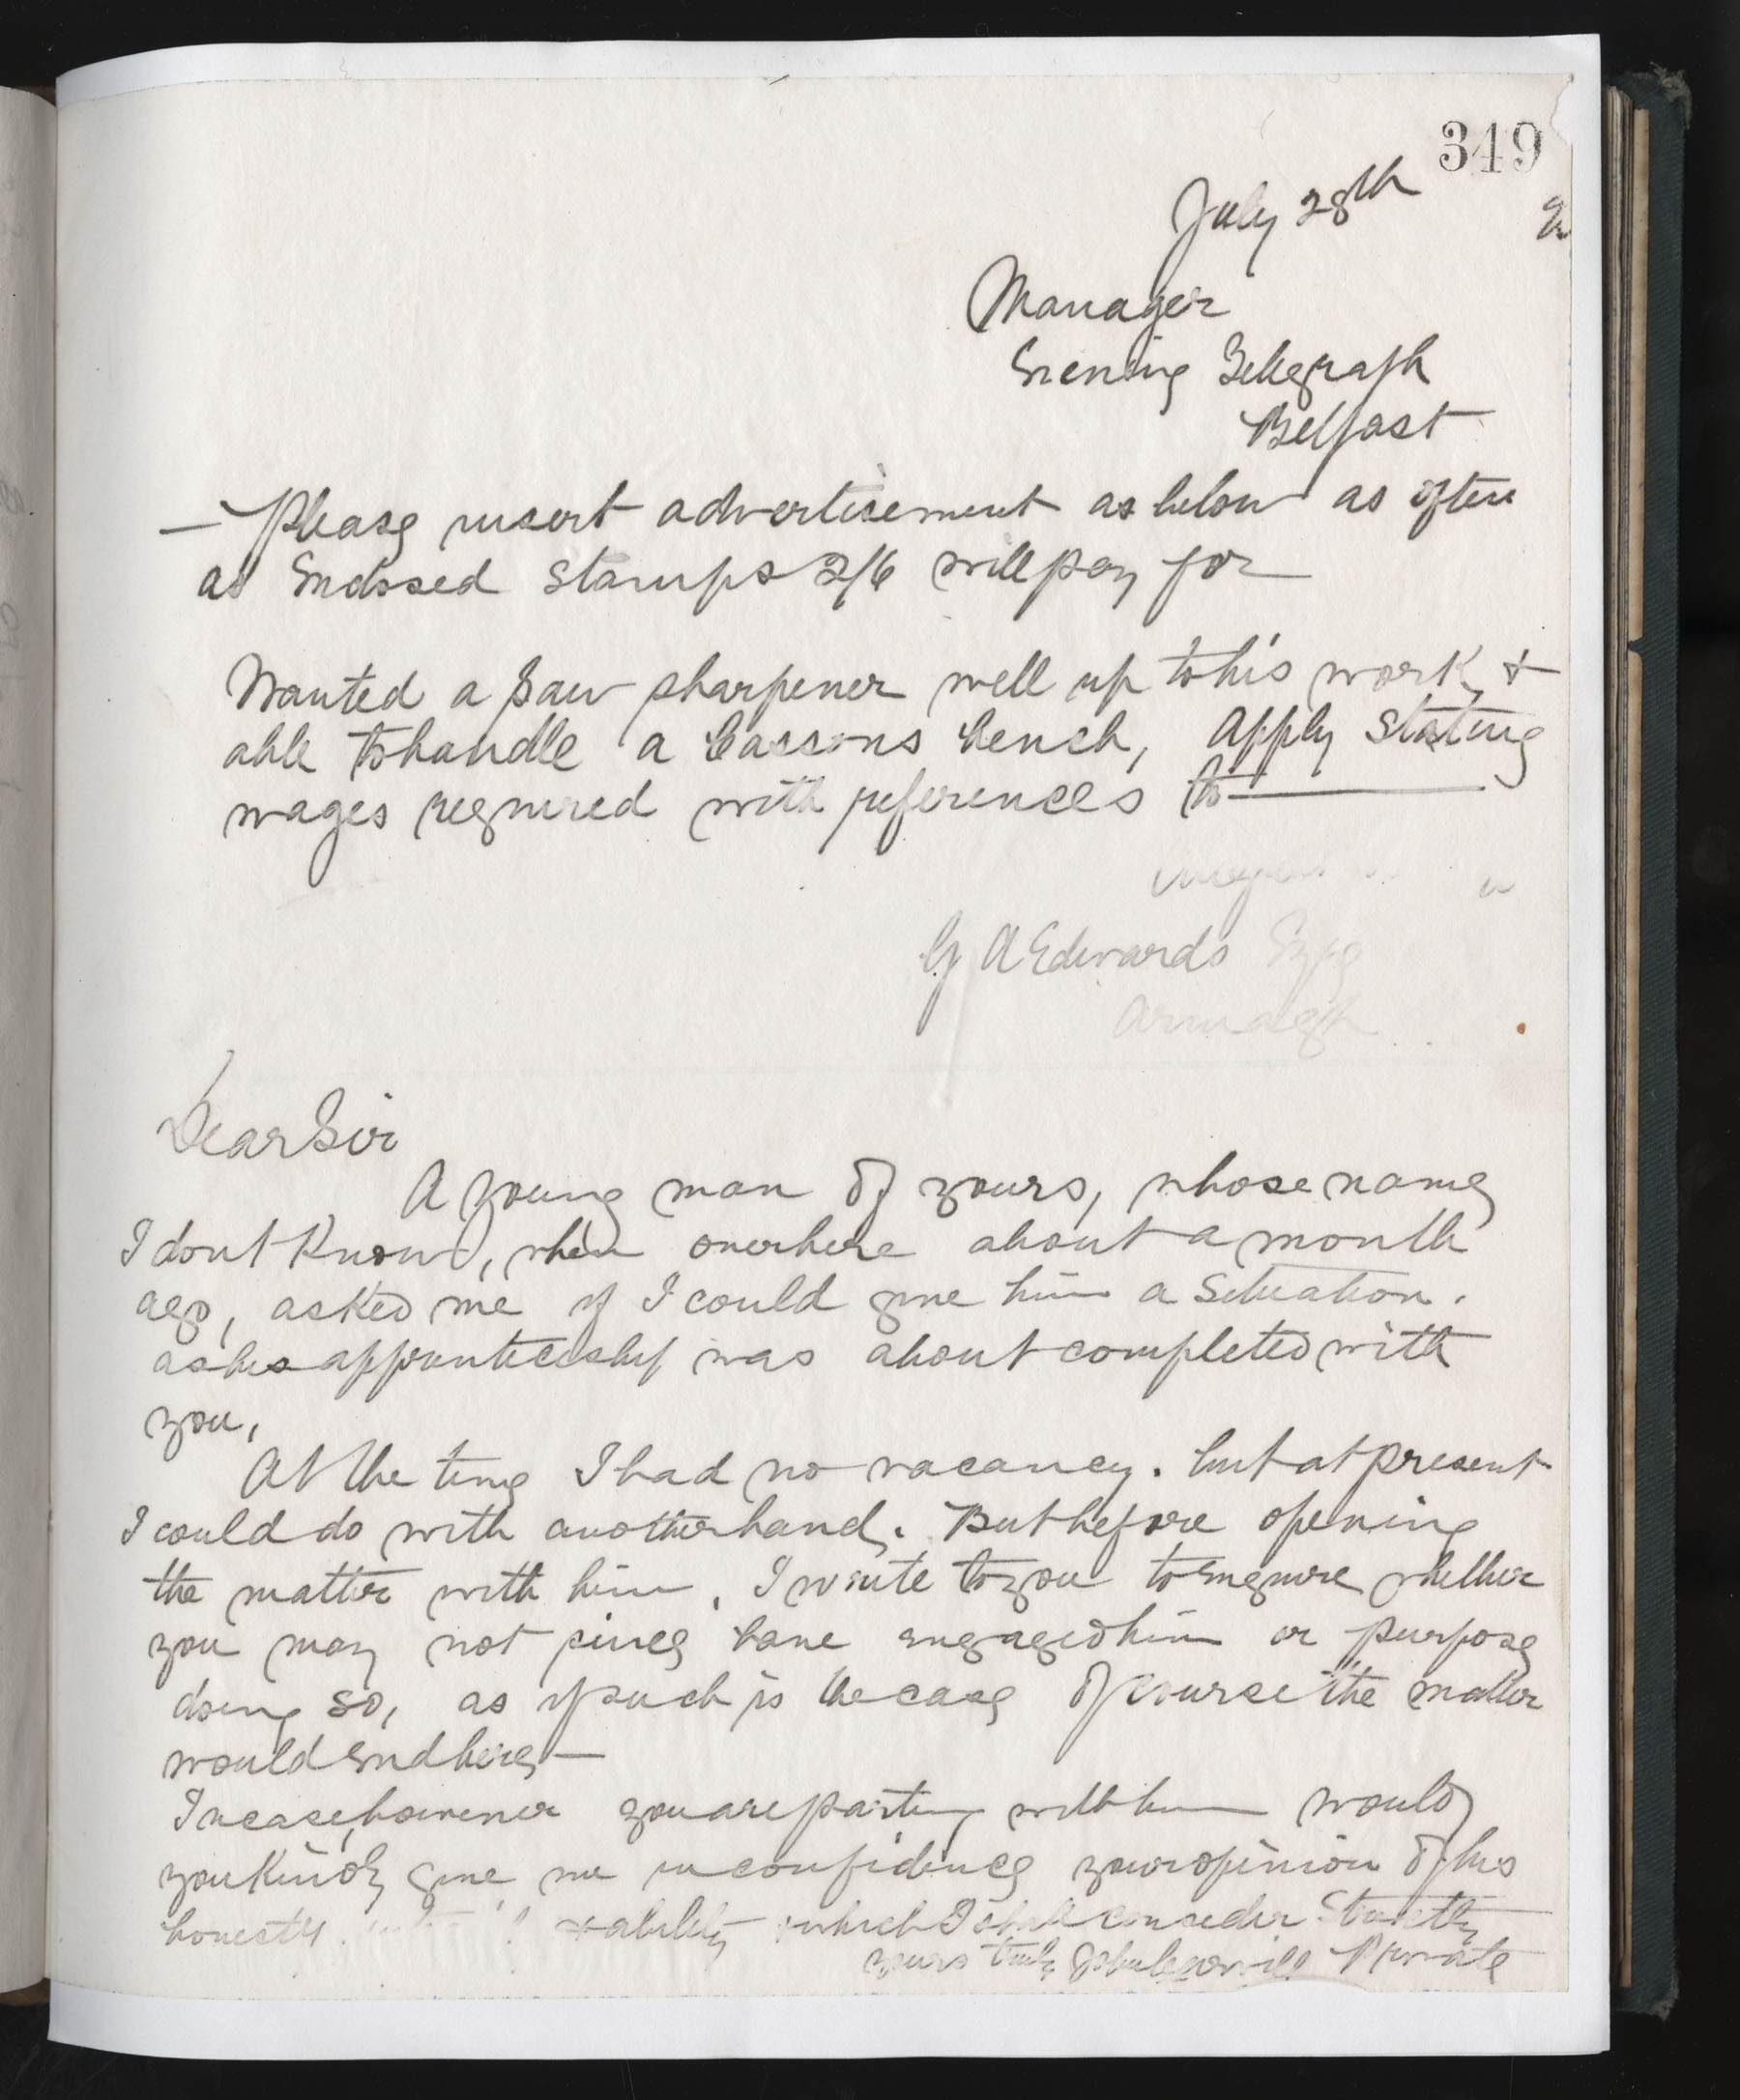 349
July 28th
Manager
Evening Telegraph
Belfast
— Please insert advertisement as below as often
as Enclosed stamps 2/6 will pay for
Wanted a Saw sharpener well up to his work, &
able to handle a Cassons bench, Apply Stating
wages required with references to
G A Edwards Esqe
Armagh
Dear Sir
A young man of yours, whose name
I dont know, when over here about a month
ago, asked me if I could give him a Situation.
as his apprenticeship was about completed with
you,
At the time I had no vacancy. but at present
I could do with another hand. But before opening
the matter with him, I write to you to enquire whether
you may not since have engaged him or purpose
doing so, as if such is the case of course the matter
would end here —
In case, however you are parting with him would
you kindly give me in confidence your opinion of his
honesty & ability which I shall consider Strictly
yours truly Private